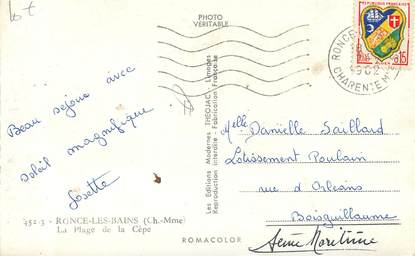 PHOTO
VÉRITABLE
RÉPUBLIQUE FRANÇAISE
0,15
RONCE-
1962
CHARENTE Mme
Beau séjour avec
soleil magnifique
Josette
Les Éditions Modernes THÉOJAC - Limoges
Reproduction interdite - Fabrication Française
Melle Danielle Saillard
Lotissement Poulain
rue d'Orléans
Boisguillaume
Seine Maritime
752-3 - RONCE-LES-BAINS (Ch.-Mme)
La Plage de la Cèpe
ROMACOLOR